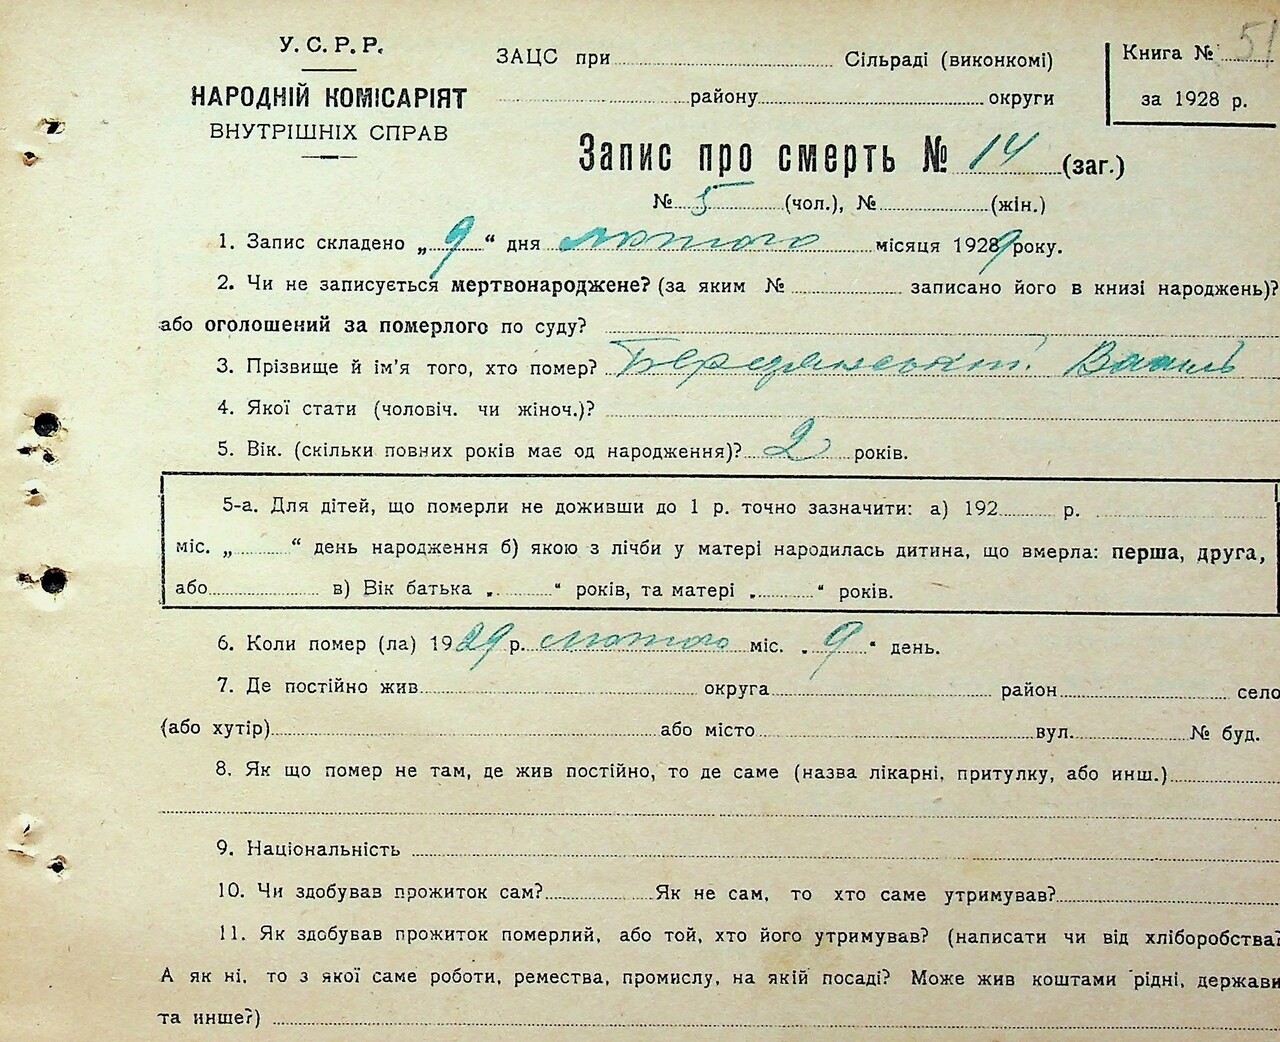 У. С. Р. Р.
НАРОДНІЙ КОМІСАРІЯТ
ВНУТРІШНІХ СПРАВ
ЗАЦС при Сільраді (виконкомі)
району округи
Книга № 51
за 1928 р.
Запис про смерть № 14 (заг.)
№ 5 (чол.), № (жін.)
1. Запис складено „ 9 “ дня лютого місяця 1929 року.
2. Чи не записується мертвонароджене? (за яким № записано його в книзі народжень)?
або оголошений за померлого по суду?
3. Прізвище й ім'я того, хто помер? Бердянський Василь
4. Якої стати (чоловіч. чи жіноч.)?
5. Вік. (скільки повних років має од народження)? 2 років.
5-а. Для дітей, що померли не доживши до 1 р. точно зазначити: а) 192 р.
міс. „ “ день народження б) якою з лічби у матері народилась дитина, що вмерла: перша, друга,
або в) Вік батька „ “ років, та матері „ “ років.
6. Коли помер (ла) 1929 р. лютого міс. „ 9 “ день.
7. Де постійно жив округа район село
(або хутір) або місто вул. № буд.
8. Як що помер не там, де жив постійно, то де саме (назва лікарні, притулку, або инш.)
9. Національність
10. Чи здобував прожиток сам? Як не сам, то хто саме утримував?
11. Як здобував прожиток померлий, або той, хто його утримував? (написати чи від хліборобства?
А як ні, то з якої саме роботи, ремества, промислу, на якій посаді? Може жив коштами рідні, держави
та инше?)